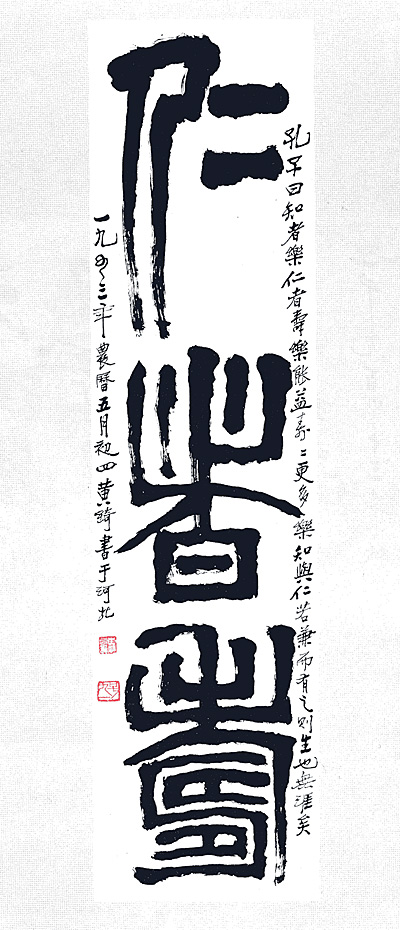 孔子曰知者樂仁者壽樂能益寿〻更多樂知與仁若兼而有之則生也無涯矣
仁者壽
一九九三年農曆五月初四黄綺書于河北